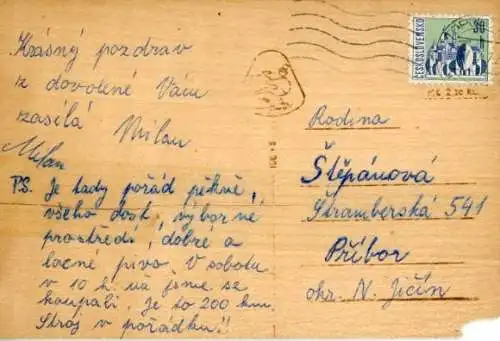 Krásný pozdrav
z dovolené Vám
zasílá Milan
Milan
PS. Je tady pořád pěkně,
všeho dost, výborné
prostředí, dobré a
lacné pivo. V sobotu
v 10 h. už jsme se
koupali. Je to 200 km.
Stroj v pořádku!!
ČESKOSLOVENSKO
30
Rodina
Štěpánová
Štramberská 541
Příbor
okr. N. Jičín